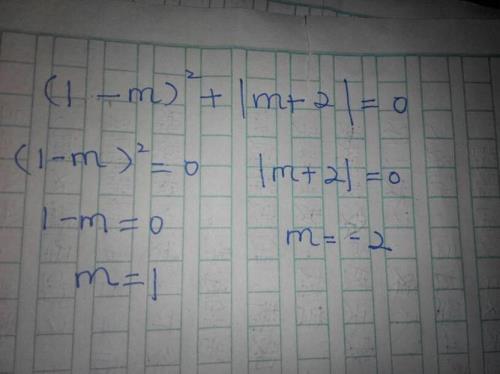 (1-m)²+|m+2|=0
(1-m)²=0 |m+2|=0
1-m=0
m=-2
m=1